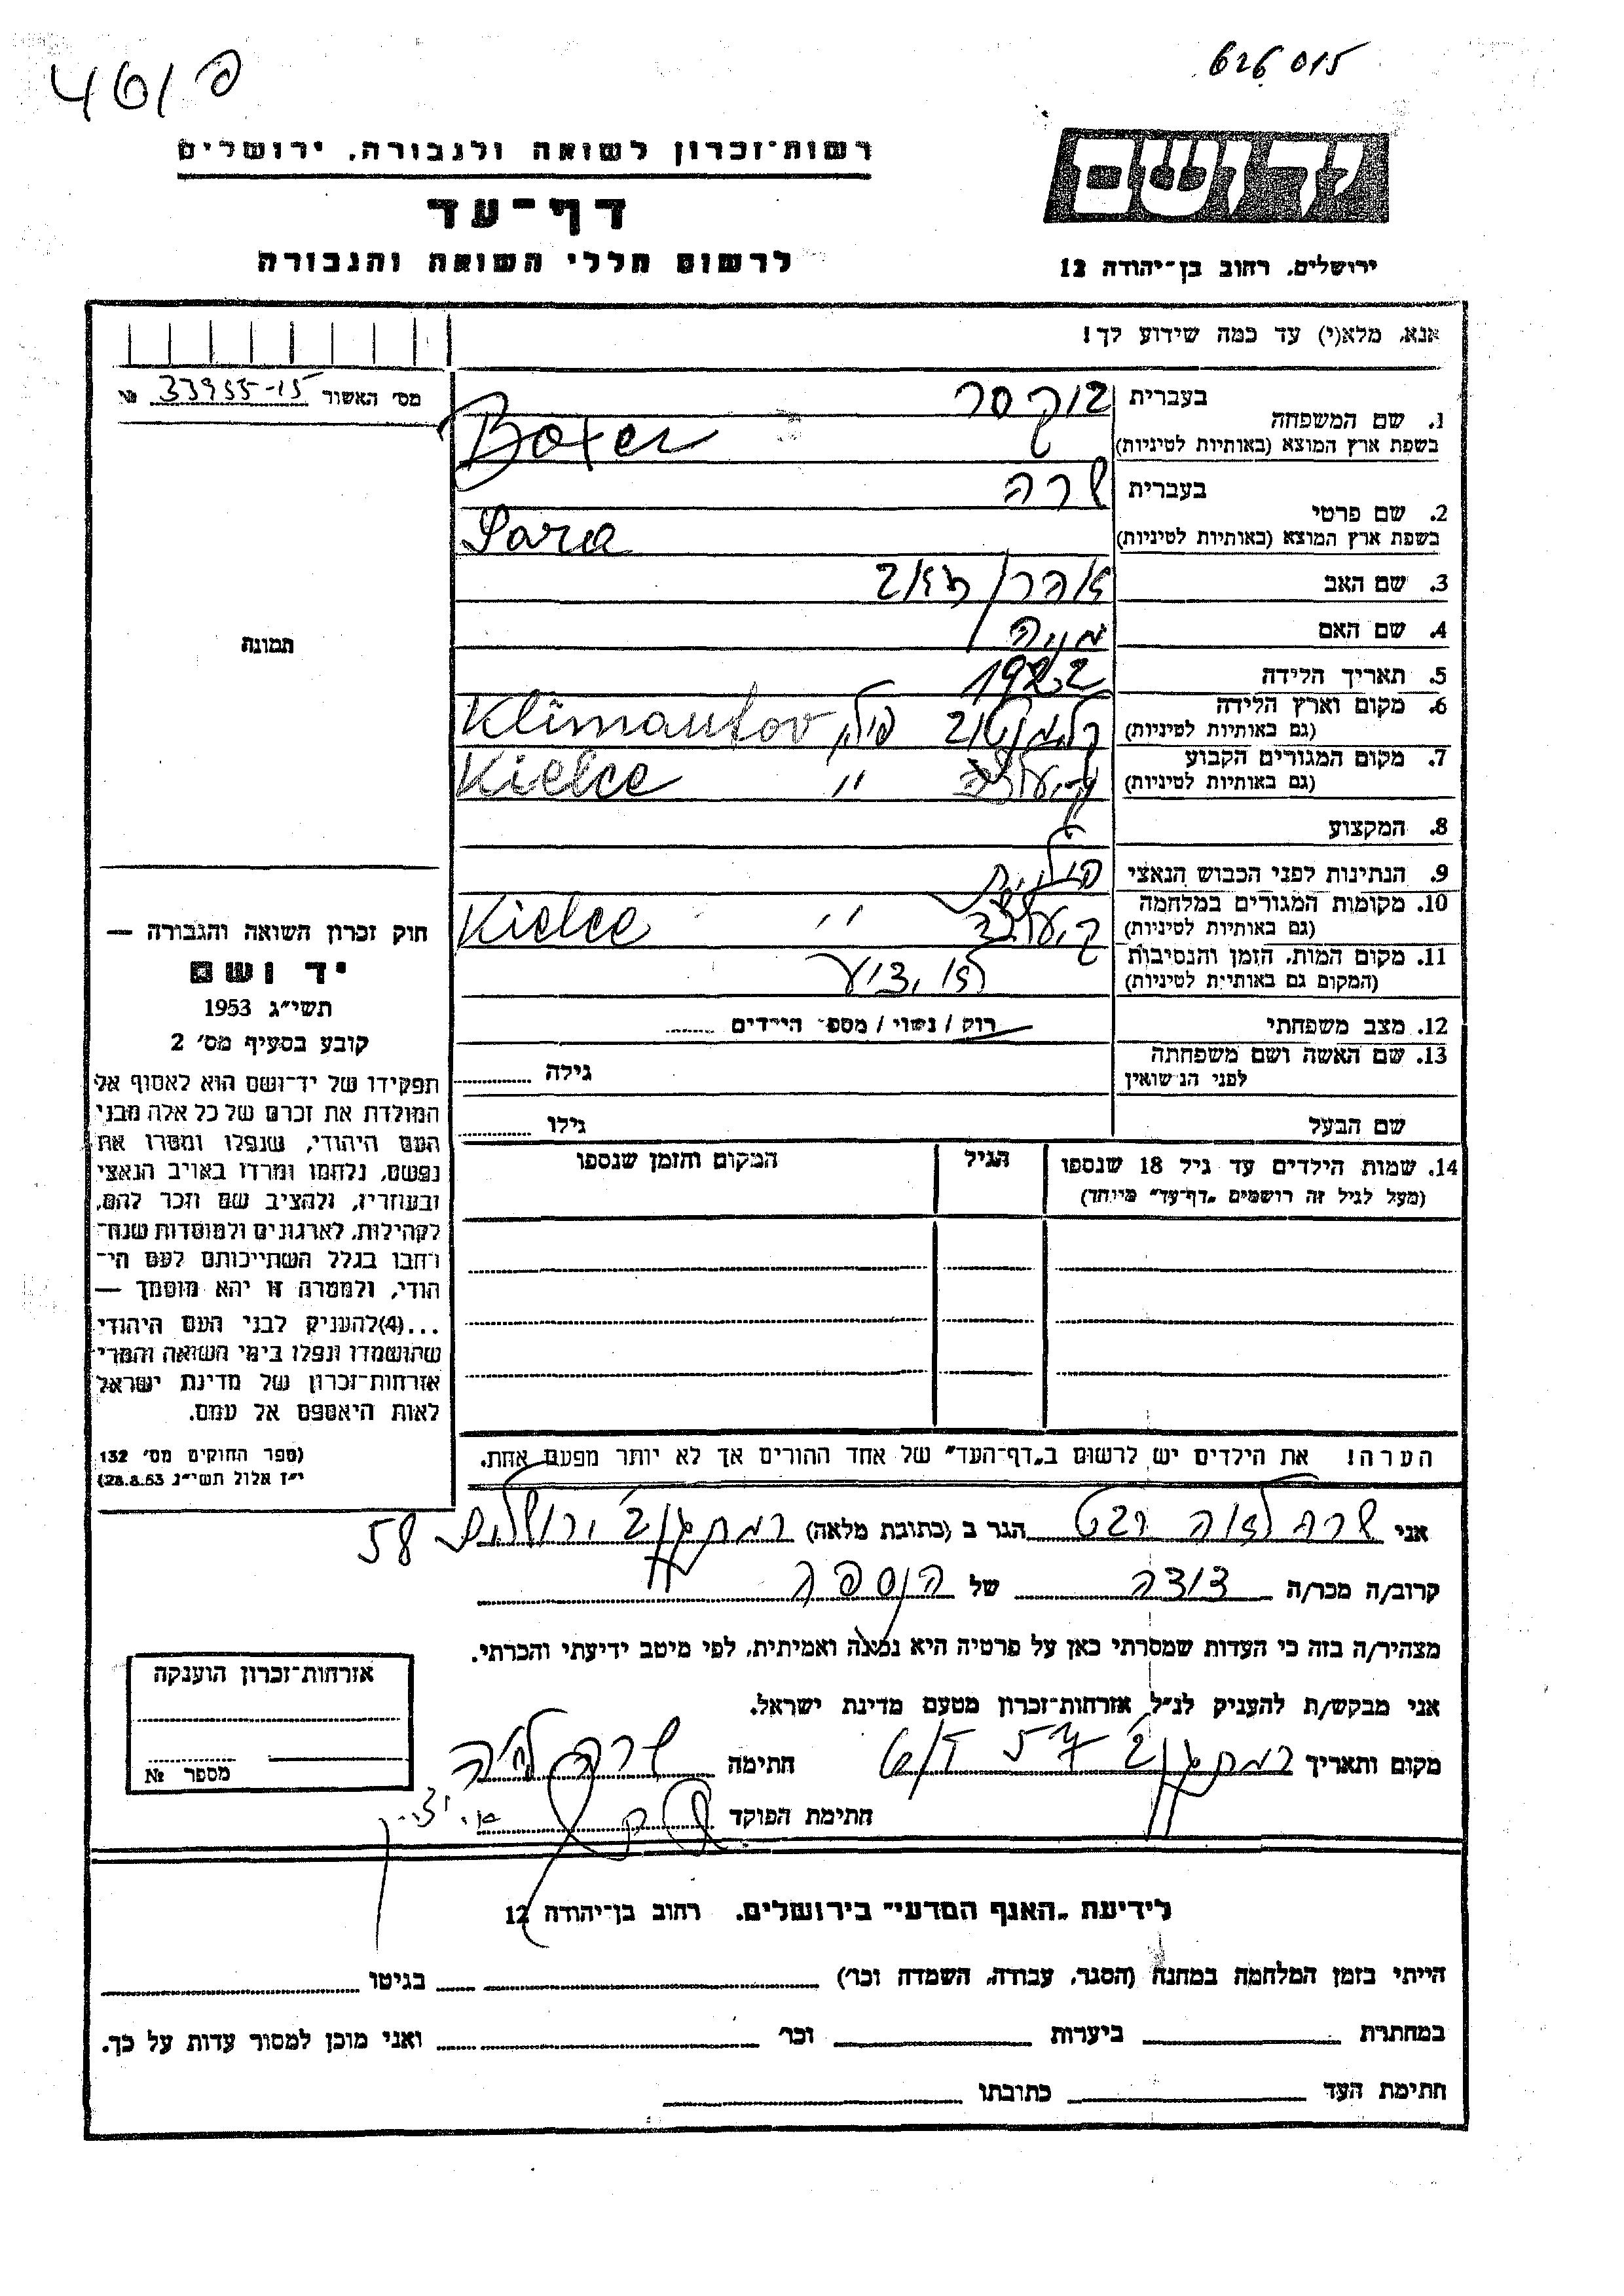 626015
461 פ
רשות־זכרון לשואה ולגבורה, ירושלים
דף־עד
לרשום חללי השואה והגבורה
יד ושם
ירושלים, רחוב בן־יהודה 12
אנא, מלא(י) עד כמה שידוע לך!
מס׳ האשור № 33955-15
1. שם המשפחה
בעברית בוקסר
בשפת ארץ המוצא (באותיות לטיניות) Boxer
2. שם פרטי
בעברית שרה
בשפת ארץ המוצא (באותיות לטיניות) Sara
3. שם האב אהרן זאב
4. שם האם
5. תאריך הלידה 1922
6. מקום וארץ הלידה
(גם באותיות לטיניות) קלימנטוב פולין Klimantov
7. מקום המגורים הקבוע
(גם באותיות לטיניות) קיעלצה " Kielce
8. המקצוע
9. הנתינות לפני הכבוש הנאצי פולנית
10. מקומות המגורים במלחמה
(גם באותיות לטיניות) קיעלצה " Kielce
11. מקום המות, הזמן והנסיבות
(המקום גם באותיית לטיניות) לא ידוע
12. מצב משפחתי רוק / נשוי / מספר הילדים
13. שם האשה ושם משפחתה
לפני הנישואין גילה
שם הבעל גילו
14. שמות הילדים עד גיל 18 שנספו
(מעל לגיל זה רושמים „דף־עד״ מיוחד)
הגיל
המקום והזמן שנספו
תמונה
חוק זכרון השואה והגבורה —
יד ושם
תשי״ג 1953
קובע בסעיף מס׳ 2
תפקידו של יד־ושם הוא לאסוף אל
המולדת את זכרם של כל אלה מבני
העם היהודי, שנפלו ומסרו את
נפשם, נלחמו ומרדו באויב הנאצי
ובעוזריו, ולהציב שם וזכר להם,
לקהילות, לארגונים ולמוסדות שנח־
רחבו בגלל השתייכותם לעם הי־
הודי, ולמטרה זו יהא מוסמך —
...(4)להעניק לבני העם היהודי
שהושמדו ונפלו בימי השואה והמרי
אזרחות־זכרון של מדינת ישראל
לאות היאספם אל עמם.
(ספר החוקים מס׳ 132
י״ז אלול תשי״ג 28.8.53)
הערה! את הילדים יש לרשום ב„דף־העד״ של אחד ההורים אך לא יותר מפעם אחת.
אני שרה לאה הגר ב (כתובת מלאה) רמת גן ירושלים 58
קרוב/ה מכר/ה דודה של הנספה
מצהיר/ה בזה כי העדות שמסרתי כאן על פרטיה היא נכונה ואמיתית, לפי מיטב ידיעתי והכרתי.
אני מבקש/ת להעניק לנ״ל אזרחות־זכרון מטעם מדינת ישראל.
מקום ותאריך רמת גן חתימה שרה
חתימת הפוקד
אזרחות־זכרון הוענקה
מספר №
לידיעת „האגף המדעי״ בירושלים. רחוב בן־יהודה 12
הייתי בזמן המלחמה במחנה (הסגר, עבודה, השמדה וכר׳) בגיטו
במחתרת ביערות וכר׳ ואני מוכן למסור עדות על כך.
חתימת העד כתובתו